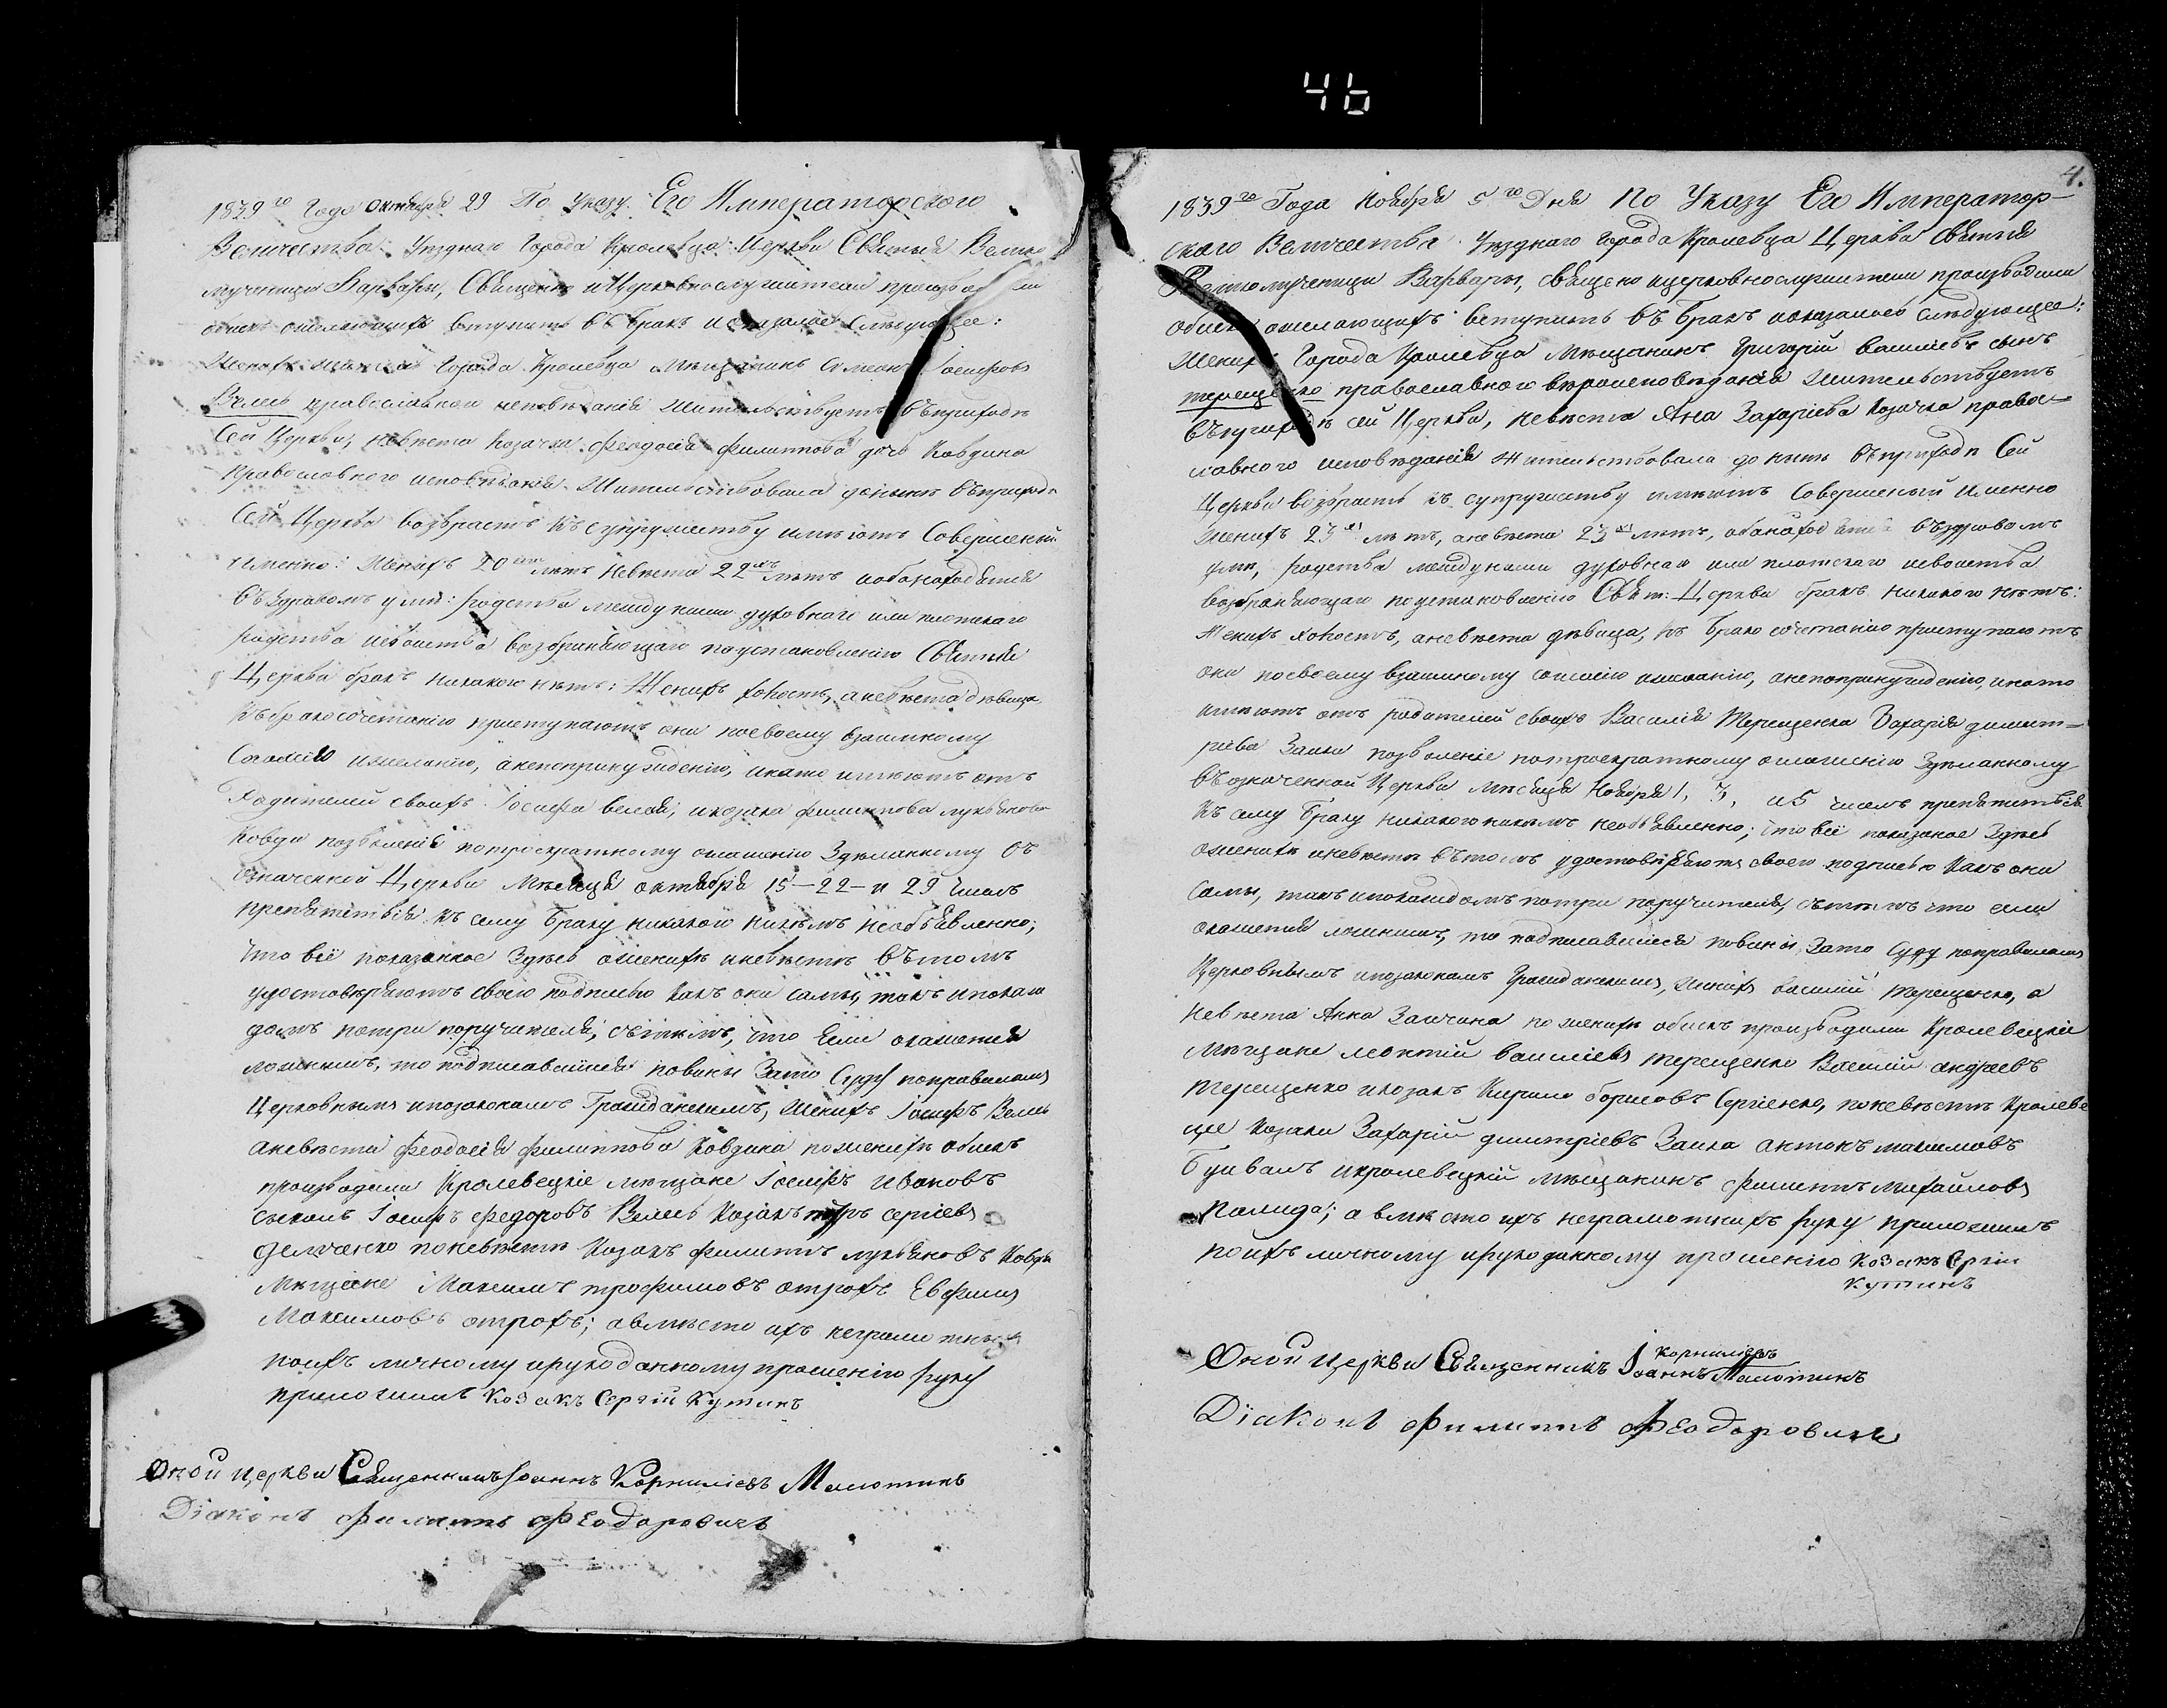 46
1839го Года Октября 29 По Указу Его Императорского
Величества Уезднаго Города Кролевца Церкви Святыя Велико
мученици Варвары, Священно и Церковнослужители производили
обиск о желающихъ вступить въ бракъ и оказалос следующее:
Женихъ Города Кролевца мещанинъ Симеонъ Іосифовъ
Велеь православнои исповеданія жительствуетъ въ приходе
Сей Церкви, невеста Козачка Феодосія Филиппова дочь Ковдина
православного исповеданія жительствовала доныне въ приходе
Сей Церкви возврастъ къ супружеству имеютъ Совершеный
именно: Женихъ 20 летъ невеста 22 летъ и оба находятся
въ здравомъ уме: родства между ними духовнаго или плотскаго
родства и свойства возбраняющаго по установленію Святыя
Церкви бракъ никакого нетъ: Женихъ холостъ, а невеста девица
къ бракосочетанію приступаютъ они по своему взаимному
Согласію и желанію, а не по принужденію, и на то имеютъ отъ
Родителей своихъ Іосифа Велея, и козака Филиппова Лукьянова
Ковди позволеніе по троекратному оглашению зделанному въ
означенной Церкви Месяця октября 15-22-и 29 числъ
препятствія къ сему браку никакого никемъ необъявленно;
что всё показанное здесь о женихе и невесте въ томъ
удостоверяютъ своею подписью какъ они сами, такъ и по каж
домъ по три поручителя, съ темъ, что если окажется
ложнымъ, то подписавшиеся повины за то суду по правиламъ
Церковнымъ и по законамъ Гражданскимъ, Женихъ Іосифъ Велеь
а невеста Феодосія Филиппова Ковдина по женихе обискъ
производили Кролевецкіе мещане Іосифъ Ивановъ
Іосифъ Федоровъ Велеь Козакъ Петръ Сергіевъ
по невесте Козакъ Филиппъ Лукьяновъ Ковдя
Мещане Максимъ Трофимовъ отрохъ Евфимъ
Максимовъ отрохъ; а вместо ихъ неграмотныхъ
по ихъ личному и рукоданному прошенію руку
приложилъ Козакъ Сергій Кутинъ
Оной церкви Священникъ Іоаннъ Корниліевъ Малютинъ
Діаконъ Филиппъ Феодоровичъ
4.
1839го Года Ноября 5го Дня По Указу Его Император-
скаго Величества Уезднаго Города Кролевца Церкви Святыя
Великомученици Варвары, священо и церковнослужители производили
обиск о желающихъ вступить въ бракъ и оказалось следующее:
Женихъ Города Кролевца мещанинъ Григорій Василіевъ сынъ
Терещенко православного вероисповеданія жительствуетъ
въ приходе сей Церкви, невеста Ана Захаріева Козачка правос-
лавного исповеданія жительствовала до ныне въ приходе Сей
Церкви возврастъ къ супружеству имеютъ Совершеный именно
женихъ 23 летъ, а невеста 23 летъ, оба находятся въ здравомъ
уме, родства между ними духовнаго или плотскаго и свойства
возбраняющаго по установленію Свят: Церкви бракъ никакого нетъ:
Женихъ холостъ, а невеста девица, къ брако сочетанию приступаютъ
они по своему взаимному согласію и желанію, а не по принуждению, и на то
имеютъ отъ родителей своихъ Василія Терещенка Захарія димит-
ріева Заики позволеніе по троекратному оглашению зделанному
въ означенной Церкви месяця Ноября 1, 3, и 5 числъ препятствія
къ сему браку никакого никемъ необъявленно; что всё показаное здесь
о женихе и невесте въ томъ удостоверяютъ своею подписью какъ они
сами, такъ и по каждомъ по три поручителя, съ темъ что если
окажется ложнымъ, то подписавшиеся повины за то суду по правиламъ
Церковнымъ и по законамъ Гражданскимъ, женихъ Василій Терещенко, а
невеста Анна Заичина по женихе обискъ производили Кролевецкіе
мещане Леонтій Василіевъ Терещенко Василій Андреевъ
Терещенко и козакъ Кирило Борисовъ Сергіенко, по невесте Кролеве
цие Козаки Захарій Димитріевъ Заика Антонъ Максимовъ
и кролевецкій мещанинъ Филиппъ Михайловъ
Палида; а вместо ихъ неграмотныхъ руку приложилъ
по ихъ личному и рукоданному прошенію Козакъ Сергій
Кутинъ
Оной церкви Священникъ Іоаннъ Корниліевъ Малютинъ
Діаконъ Филиппъ Феодоровичъ